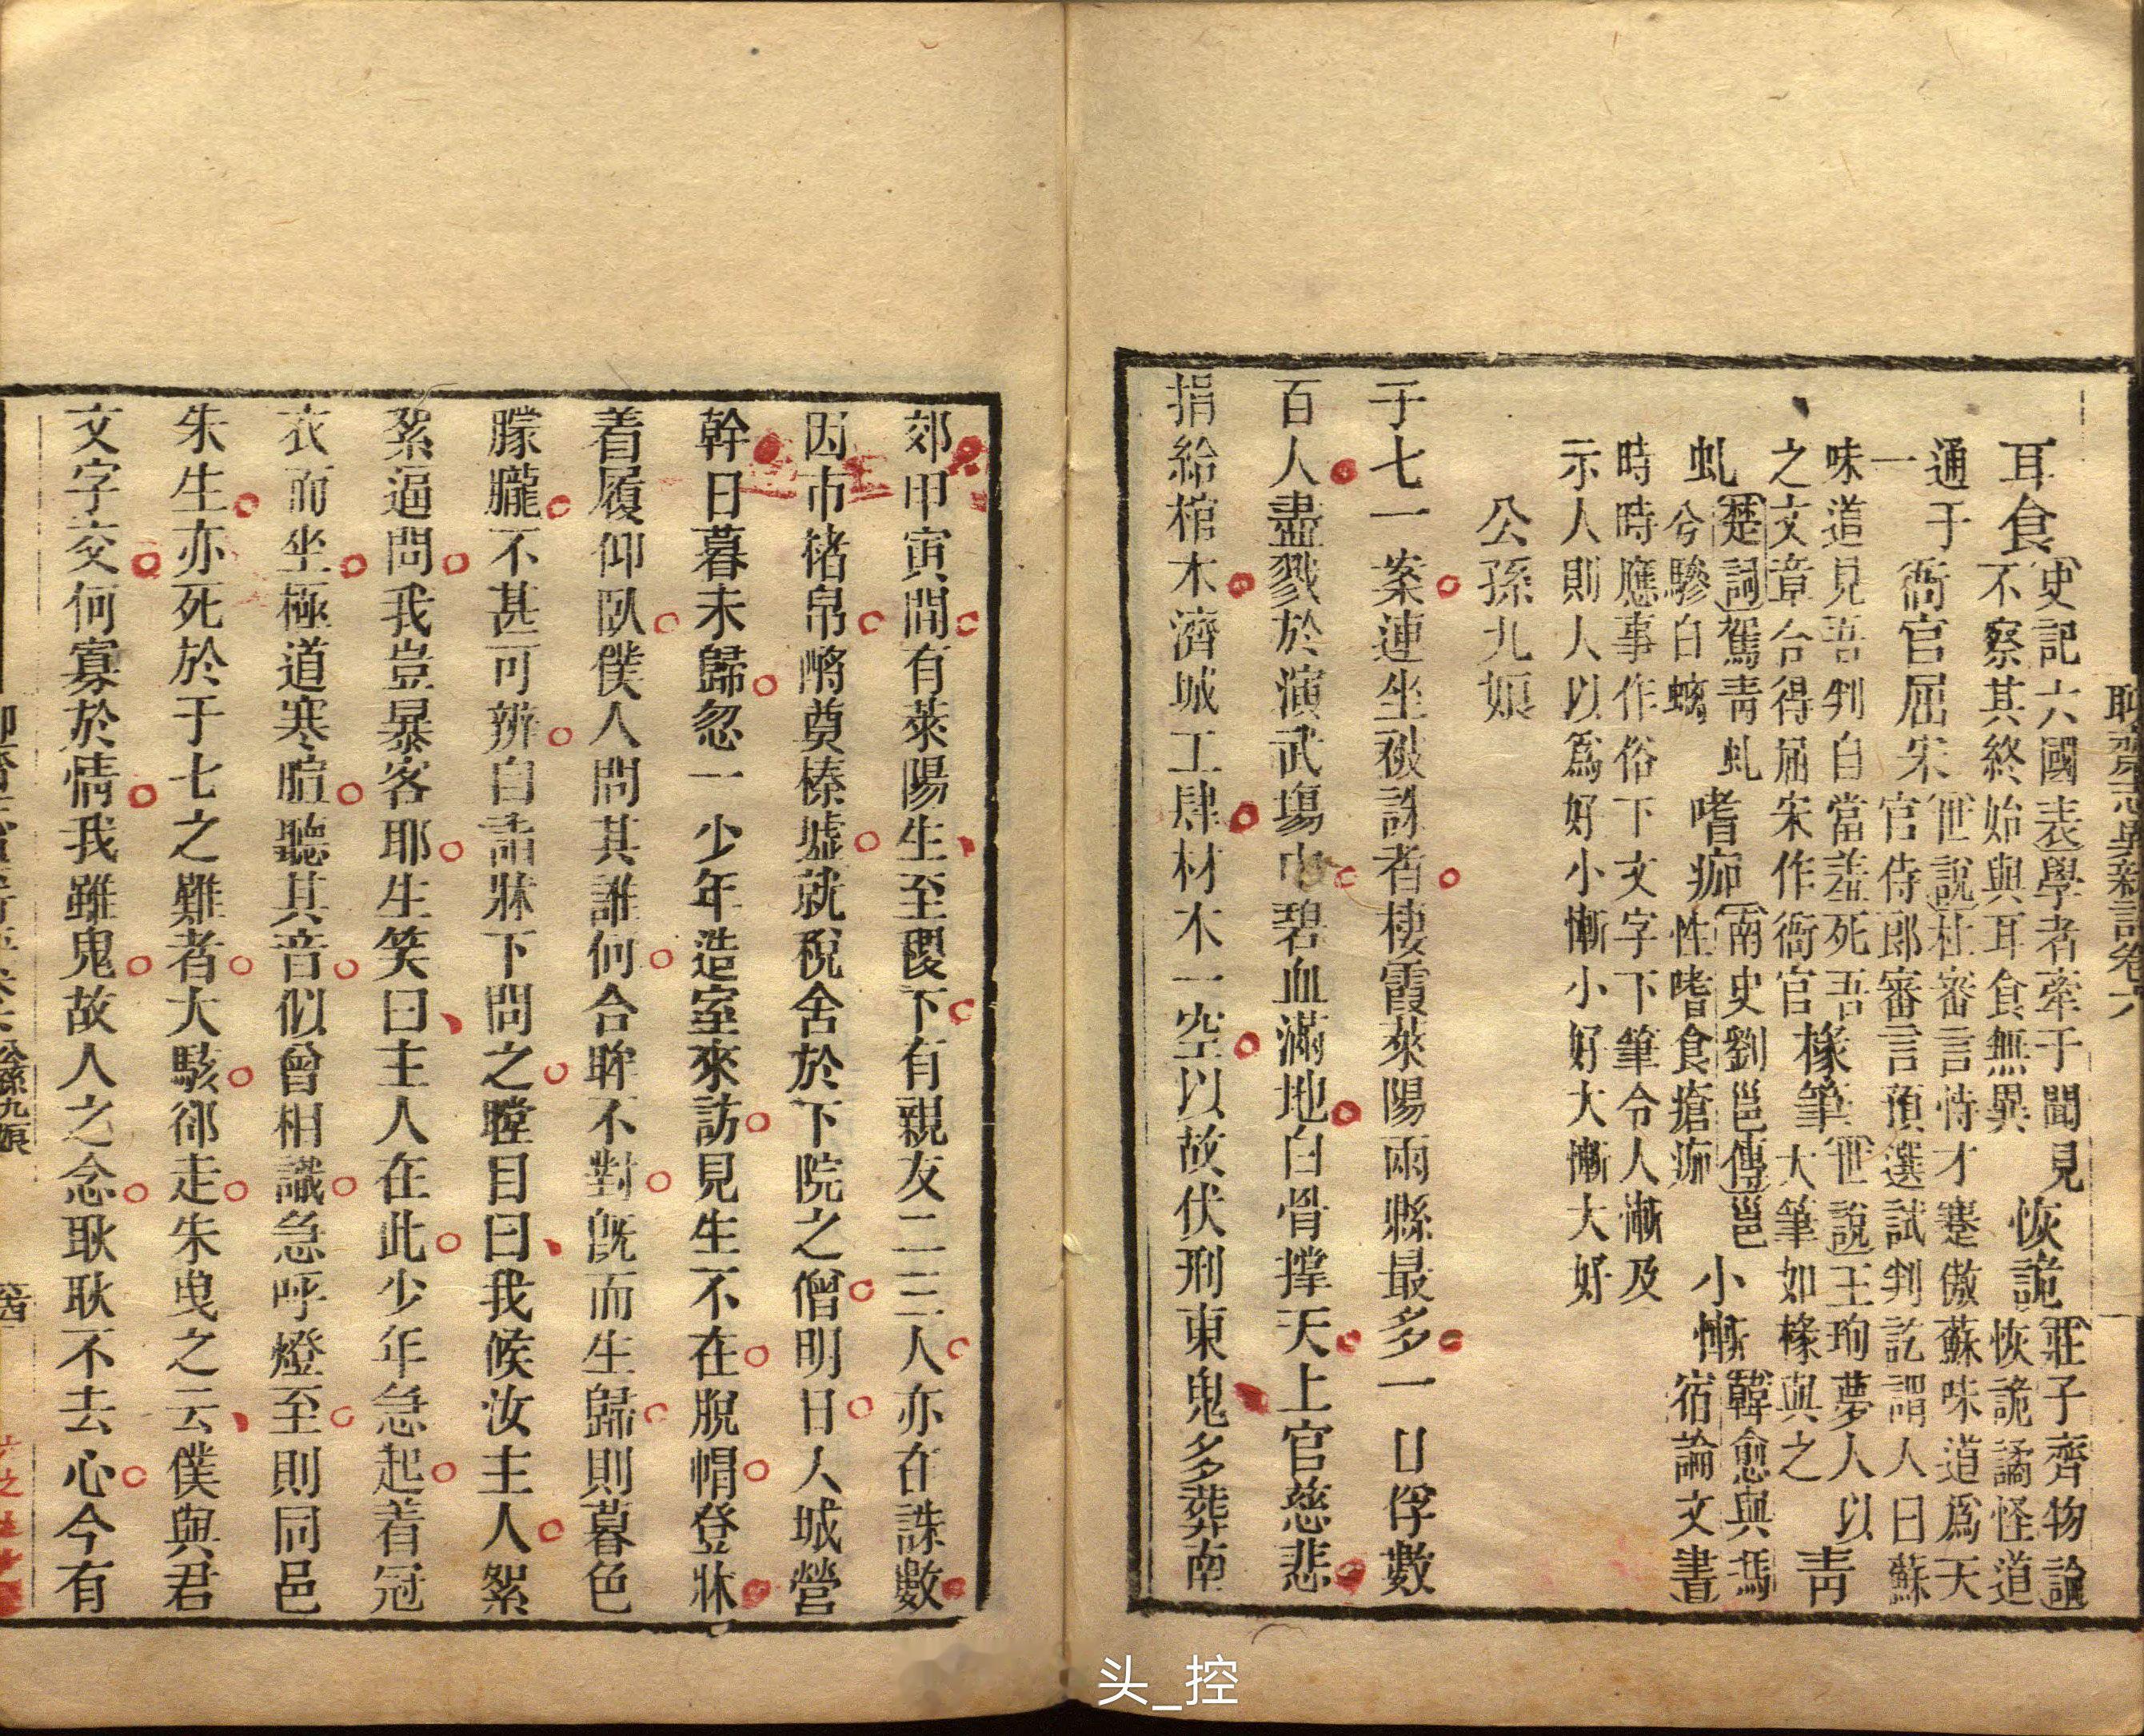 聊齋志異新評卷六
耳食
史記六國表學者牽于聞見
不察其終始與耳食無異
恢詭
莊子齊物論
恢詭譎怪道
通于
一
衙官屈宋
世說杜審言恃才蹇傲蘇味道爲天
官侍郎審言預選試判訖謂人曰蘇
味道見吾判自當羞死吾
之文章合得屈宋作衙官
椽筆
世說王珣夢人以
大筆如椽與之
青
虬
楚詞駕青虬
兮驂白螭
嗜痂
南史劉邕傳邕
性嗜食瘡痂
小慚
韓愈與馮
宿論文書
時時應事作俗下文字下筆令人慚及
示人則人以爲好小慚小好大慚大好
公孫九娘
于七一案連坐被誅者棲霞萊陽兩縣最多一日俘數
百人盡戮於演武塲中碧血滿地白骨撑天上官慈悲
捐給棺木濟城工肆材木一空以故伏刑東鬼多葬南
郊甲寅間有萊陽生至稷下有親友二三人亦在誅數
因市楮帛酹奠榛墟就稅舍於下院之僧明日人城營
幹日暮未歸忽一少年造室來訪見生不在脫帽登牀
着履仰臥僕人問其誰何合眸不對旣而生歸則暮色
朦朧不甚可辨自詣牀下問之瞠目曰我候汝主人絮
絮逼問我豈暴客耶生笑曰主人在此少年急起着冠
衣而坐極道寒暄聽其音似曾相識急呼燈至則同邑
朱生亦死於于七之難者大駭郤走朱曳之云僕與君
文字交何寡於情我雖鬼故人之念耿耿不去心今有
公孫九娘
头_控